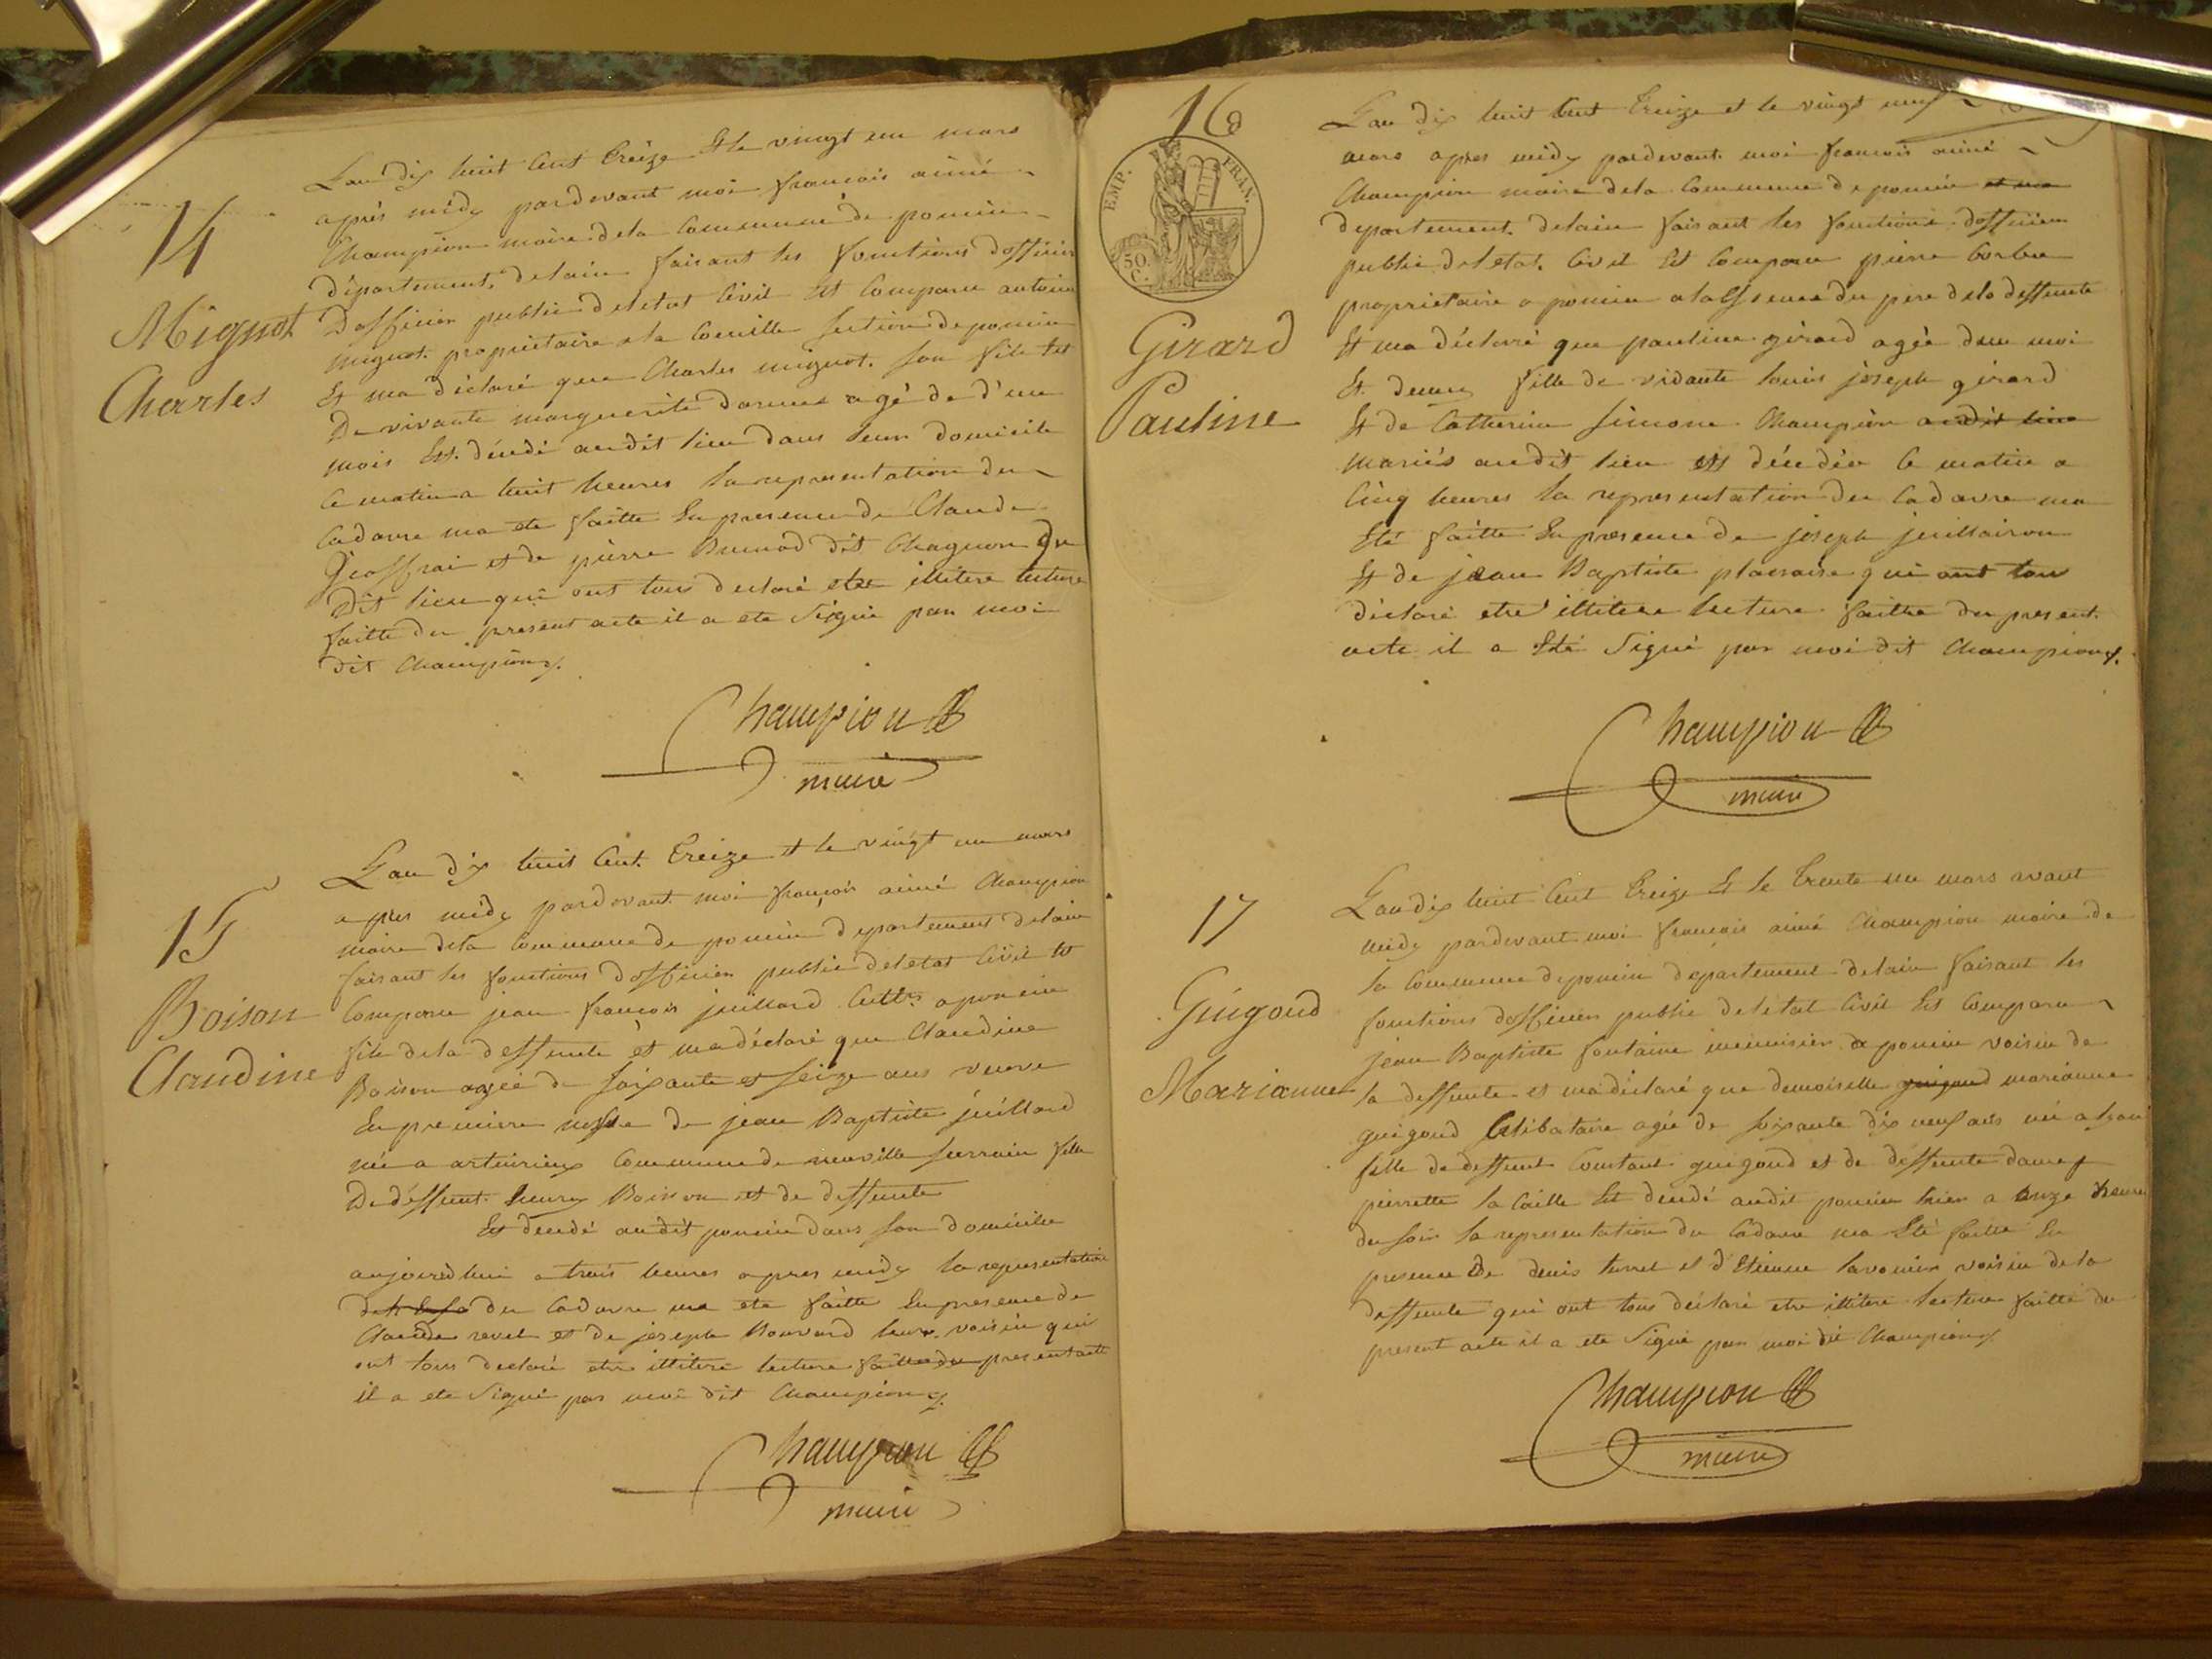 14
Mignot
Charles
Lan dix huit Cent treize Et le vingt un mars
après midy pardevant moi francois aimé
Champion maire dela Commune de poncin
département delain faisant les fonctions dofficier
dofficier public deletat Civil Est Comparu antoine
mignot propriétaire a la section de poncin
Et ma déclaré que Charles mignot son fils et
De vivante marguerite agé de d'un
mois Est décédé audit lieu dans leur domicile
Ce matin a huit heures la representation du
Cadavre ma ete faitte En presence de Claude
Geoffrai et de pierre dit Chagnon du
dit lieu qui ont tous declaré etre illitere lecture
faitte du present acte il a ete signé par moi
dit Champion
Champion
maire
15
Boison
Claudine
Lan dix huit Cent treize et le vingt un mars
apres midy pardevant moi françois aimé Champion
maire dela Commune de poncin departement delain
faisant les fonctions dofficier public deletat Civil Est
Comparu jean francois juillard a poncin
fils dela deffunte et ma déclaré que Claudine
Boison agée de soixante et seize ans veuve
En premiere de jean Baptiste juillard
née a Commune de neuville surrain fille
De déffunt henry Boison et de deffunte
Est décédé audit poncin dans son domicile
aujourdhui a trois heures apres midy la representation
du Cadavre ma ete faitte En presence de
Claude revel et de joseph Bouvard leur voisin qui
ont tous declaré etre illitere lecture faitte du present acte
il a ete signé par moi dit Champion
Champion
maire
16
EMP. FRAN.
50.
C.
Girard
Pauline
Lan dix huit Cent treize et le vingt neuf
mars apres midy pardevant moi francois aimé
Champion maire dela Commune de poncin et ma
departement delain faisant les fonctions dofficier
public deletat Civil Est Comparu pierre
proprietaire a poncin a labsence du pere dela deffunte
Et ma déclaré que pauline girard agée dun moi
Et demy fille de vivante louis joseph girard
Et de Catherine simone Champion audit lieu
mariés audit lieu est décédée Ce matin a
Cinq heures la representation du Cadavre ma
Eté faitte En presence de joseph juillairon
Et de jean Baptiste qui ont tous
déclaré etre illitere lecture faitte du present
acte il a Eté signé par moi dit Champion
Champion
maire
17
Guigoud
Marianne
Lan dix huit Cent treize Et le trente un mars avant
midy pardevant moi francois aimé Champion maire de
la Commune de poncin departement delain faisant les
fonctions dofficier public deletat Civil Est Comparu
jean Baptiste fontaine menuisier a poncin voisin de
la deffunte et ma déclaré que demoiselle guigoud marianne
guigoud Celibataire agée de soixante dix neuf ans née a
fille de deffunt Constant guigoud et de deffunte dame
pierrette la Caille Est decedé audit poncin hier a onze heures
du soir la representation du Cadavre ma Eté faitte En
presence de denis et d'Etienne voisin de la
deffunte qui ont tous déclaré etre illitere lecture faitte du
present acte il a ete signé par moi dit Champion
Champion
maire